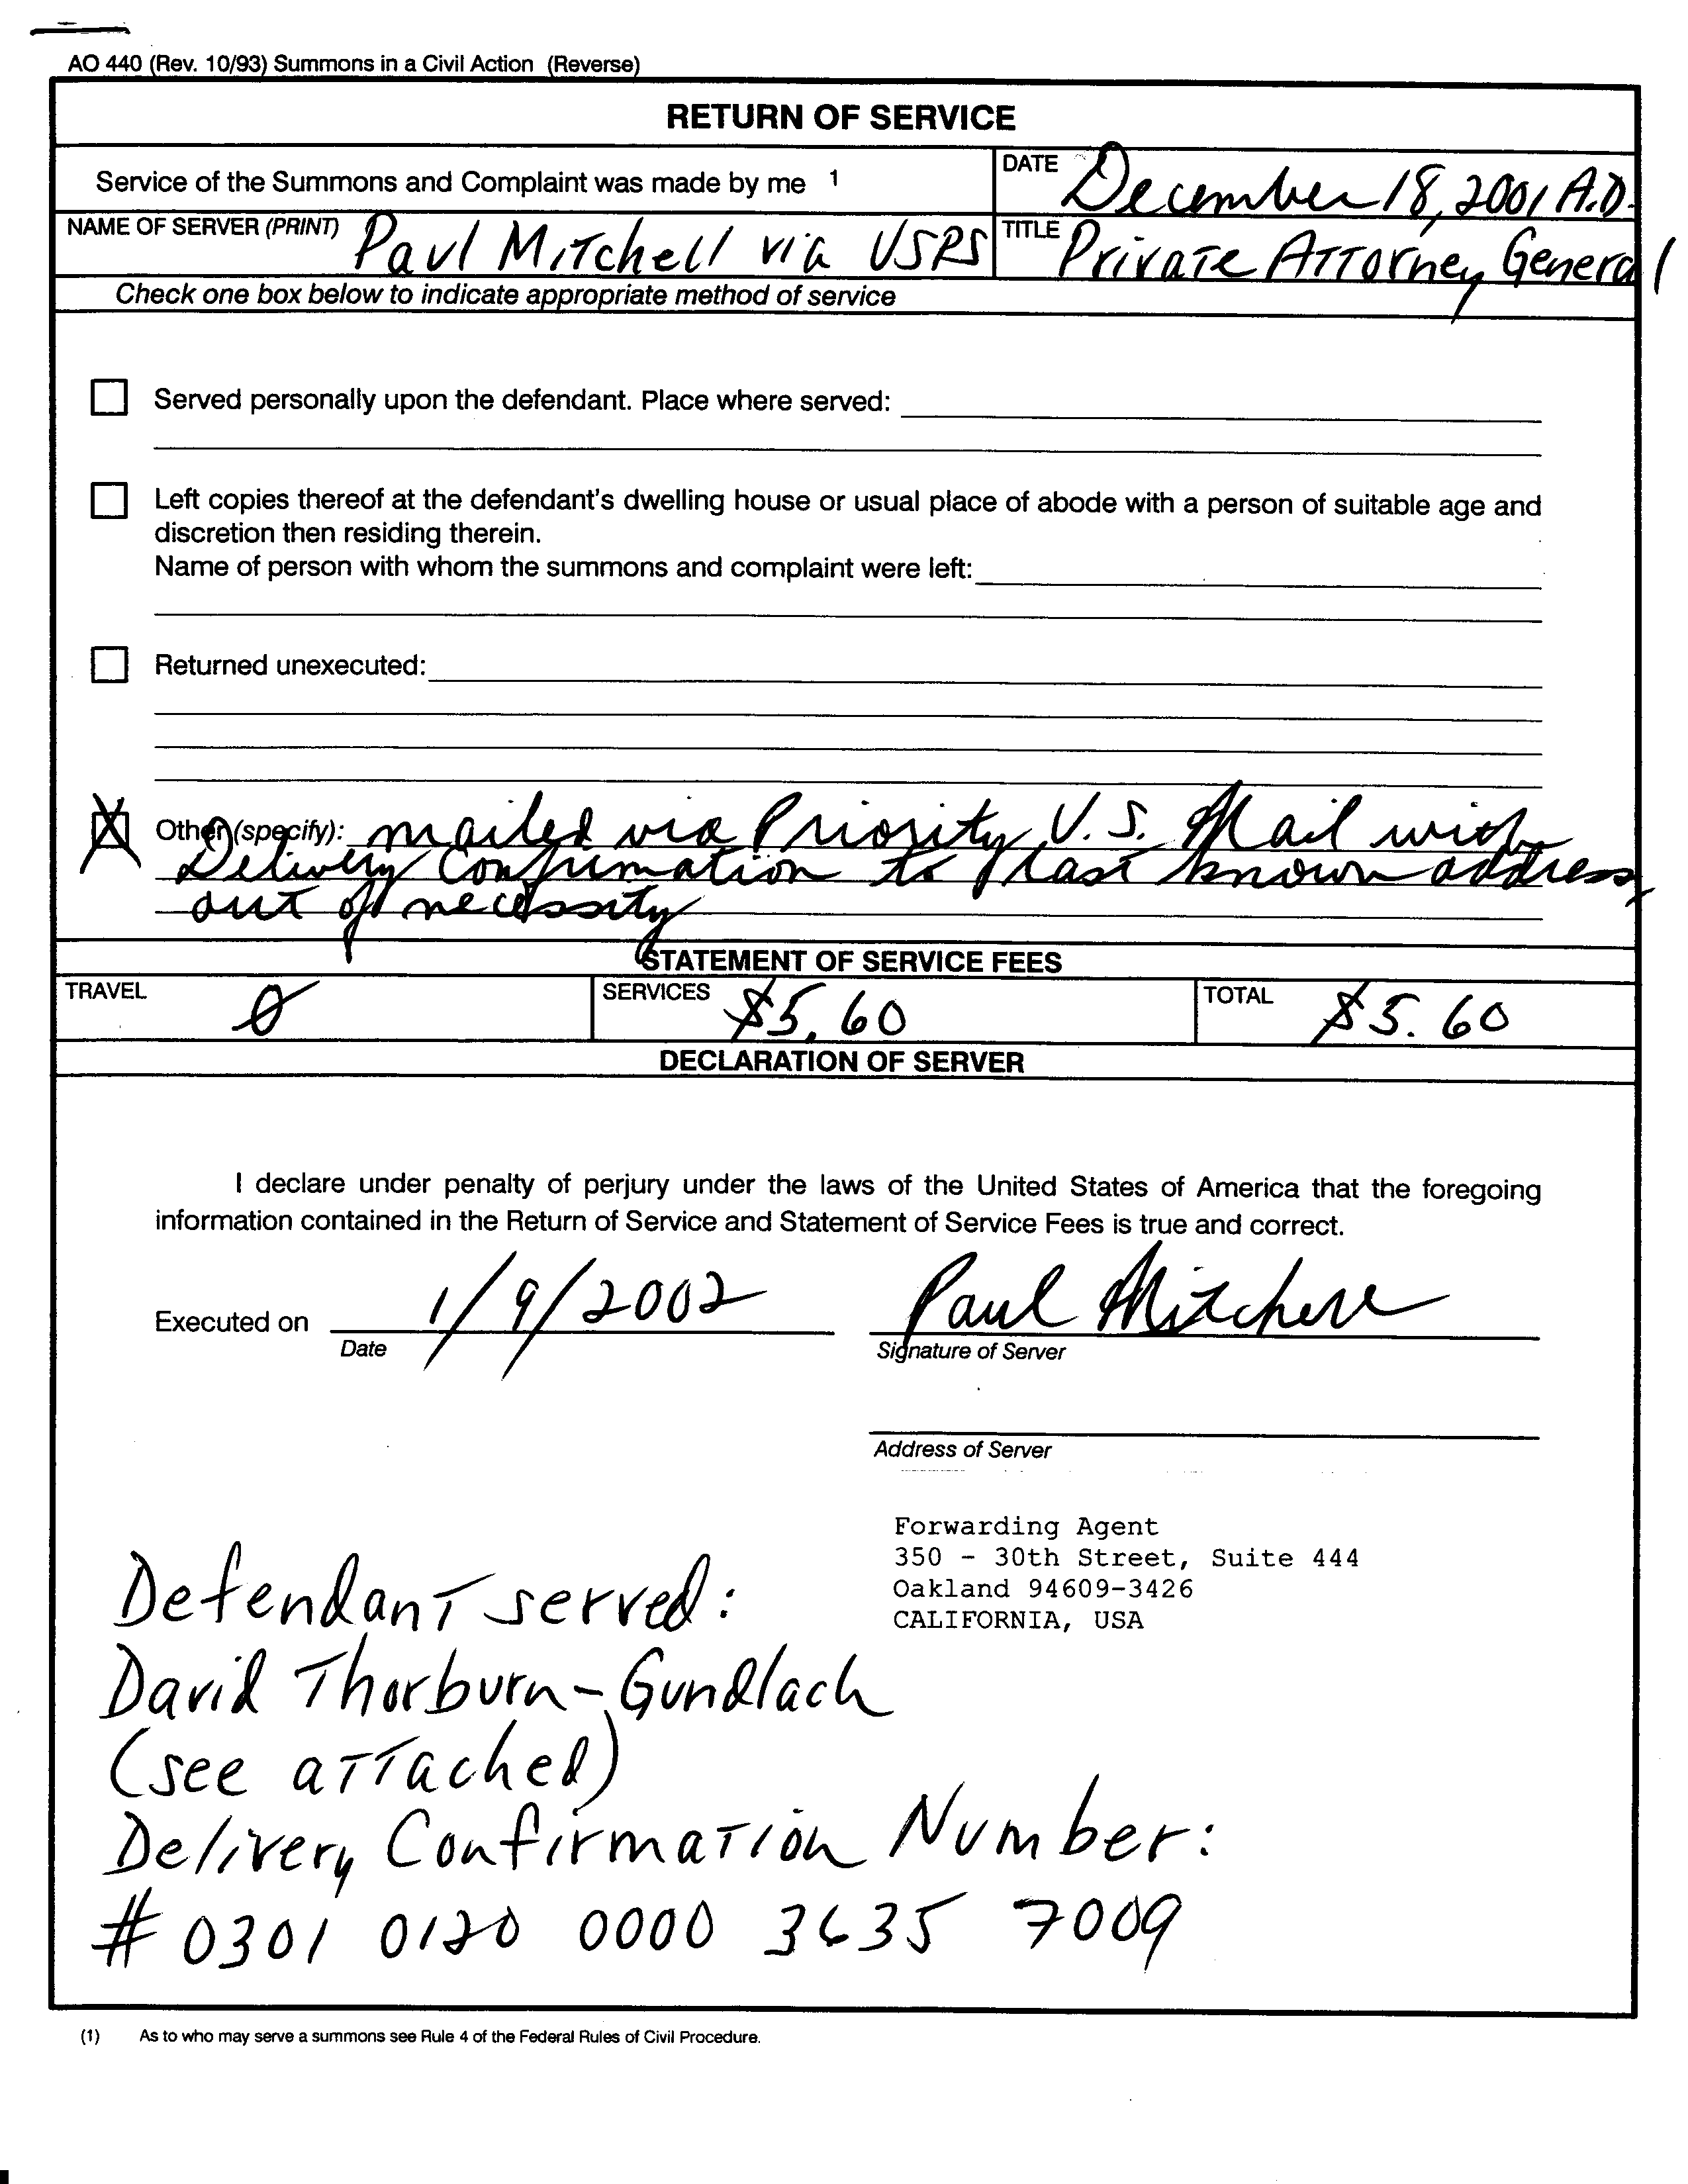 AO 440 (Rev. 10/93) Summons in a Civil Action (Reverse)
RETURN OF SERVICE
Service of the Summons and Complaint was made by me 1
DATE December 18, 2001 A.D.
NAME OF SERVER (PRINT) Paul Mitchell via USPS
TITLE Private Attorney General
Check one box below to indicate appropriate method of service
Served personally upon the defendant. Place where served:
Left copies thereof at the defendant's dwelling house or usual place of abode with a person of suitable age and
discretion then residing therein.
Name of person with whom the summons and complaint were left:
Returned unexecuted:
X Other (specify): mailed via Priority U.S. Mail with
Delivery Confirmation to last known address
out of necessity
STATEMENT OF SERVICE FEES
TRAVEL 0
SERVICES $5.60
TOTAL $5.60
DECLARATION OF SERVER
I declare under penalty of perjury under the laws of the United States of America that the foregoing
information contained in the Return of Service and Statement of Service Fees is true and correct.
Executed on 1/9/2002 Paul Mitchell
Date Signature of Server
Address of Server
Forwarding Agent
350 - 30th Street, Suite 444
Oakland 94609-3426
CALIFORNIA, USA
Defendant served:
David Thorburn-Gundlach
(see attached)
Delivery Confirmation Number:
# 0301 0120 0000 3635 7009
(1) As to who may serve a summons see Rule 4 of the Federal Rules of Civil Procedure.